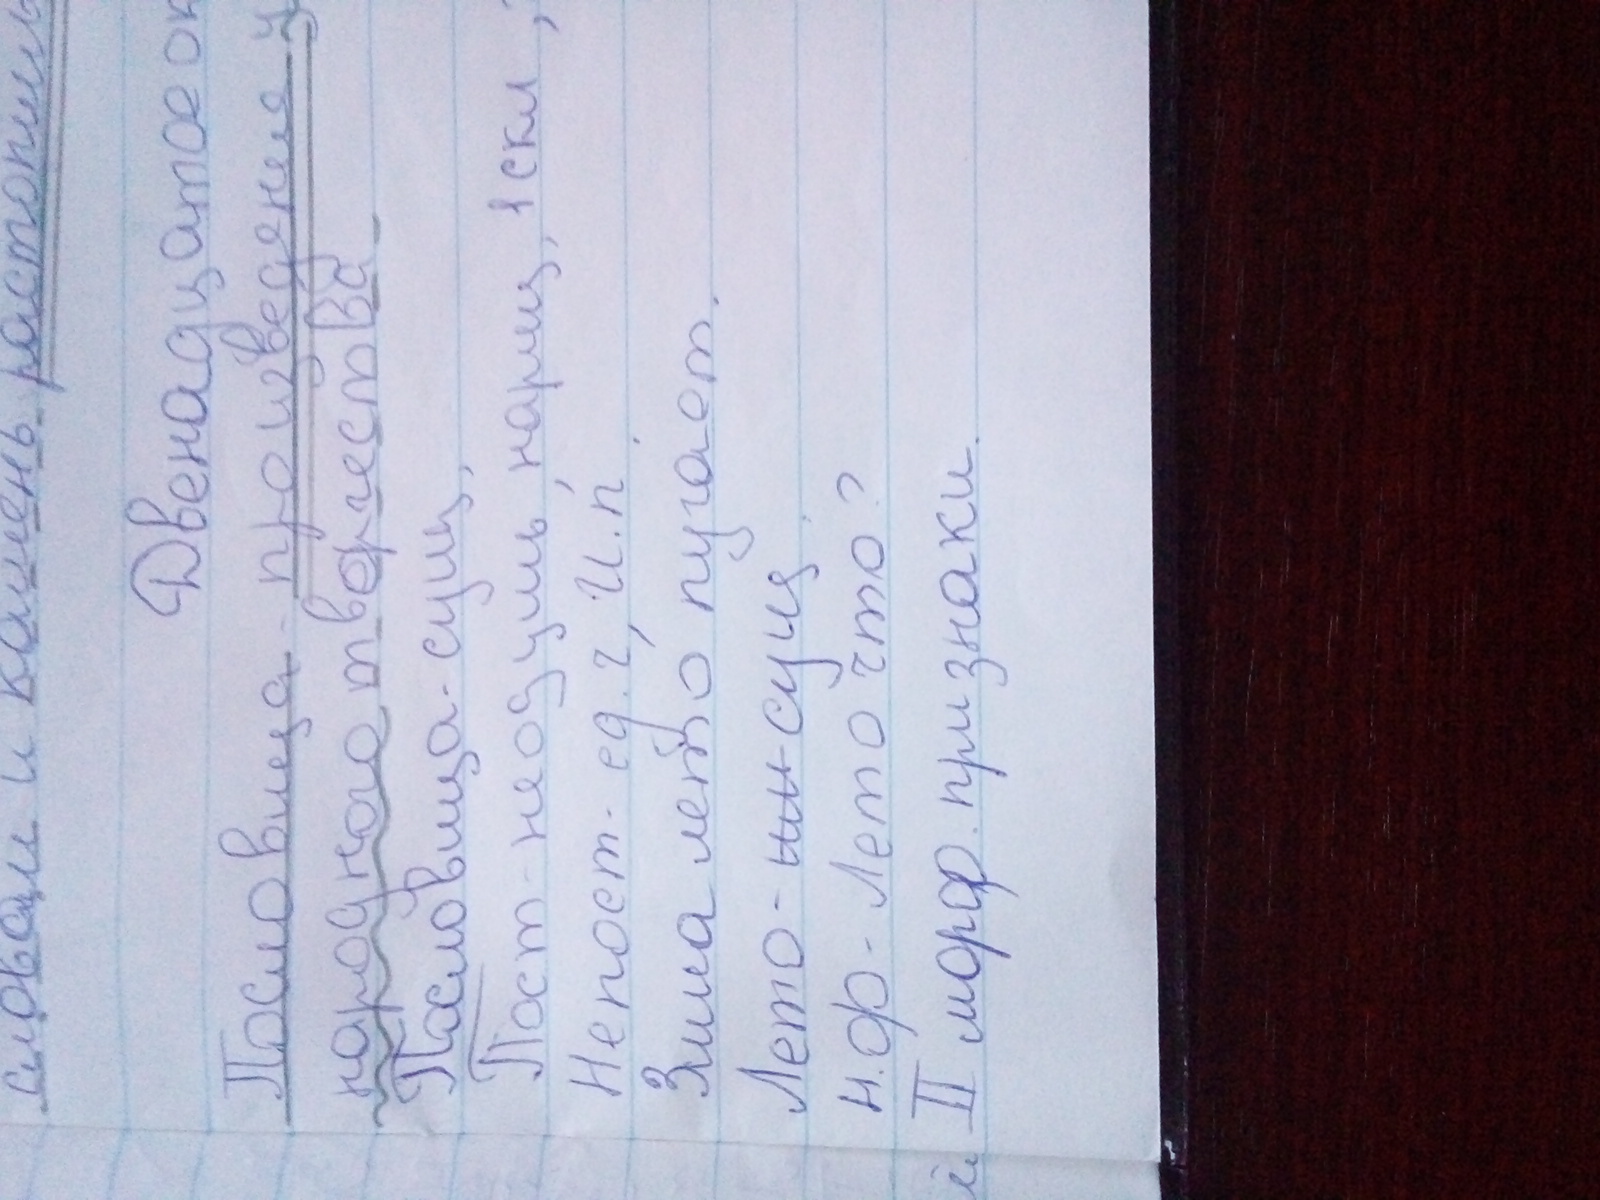 словом и камень растопишь
Двенадцатое ок
Пословица - произведения у
народного творчества
Пословица - сущ,
Пост - неодуш, нариц, 1 скл,
Непост. ед.ч, И.п
Зима лето пугает.
Лето - сущ
н.ф - Лето что?
II морф. признаки.
й